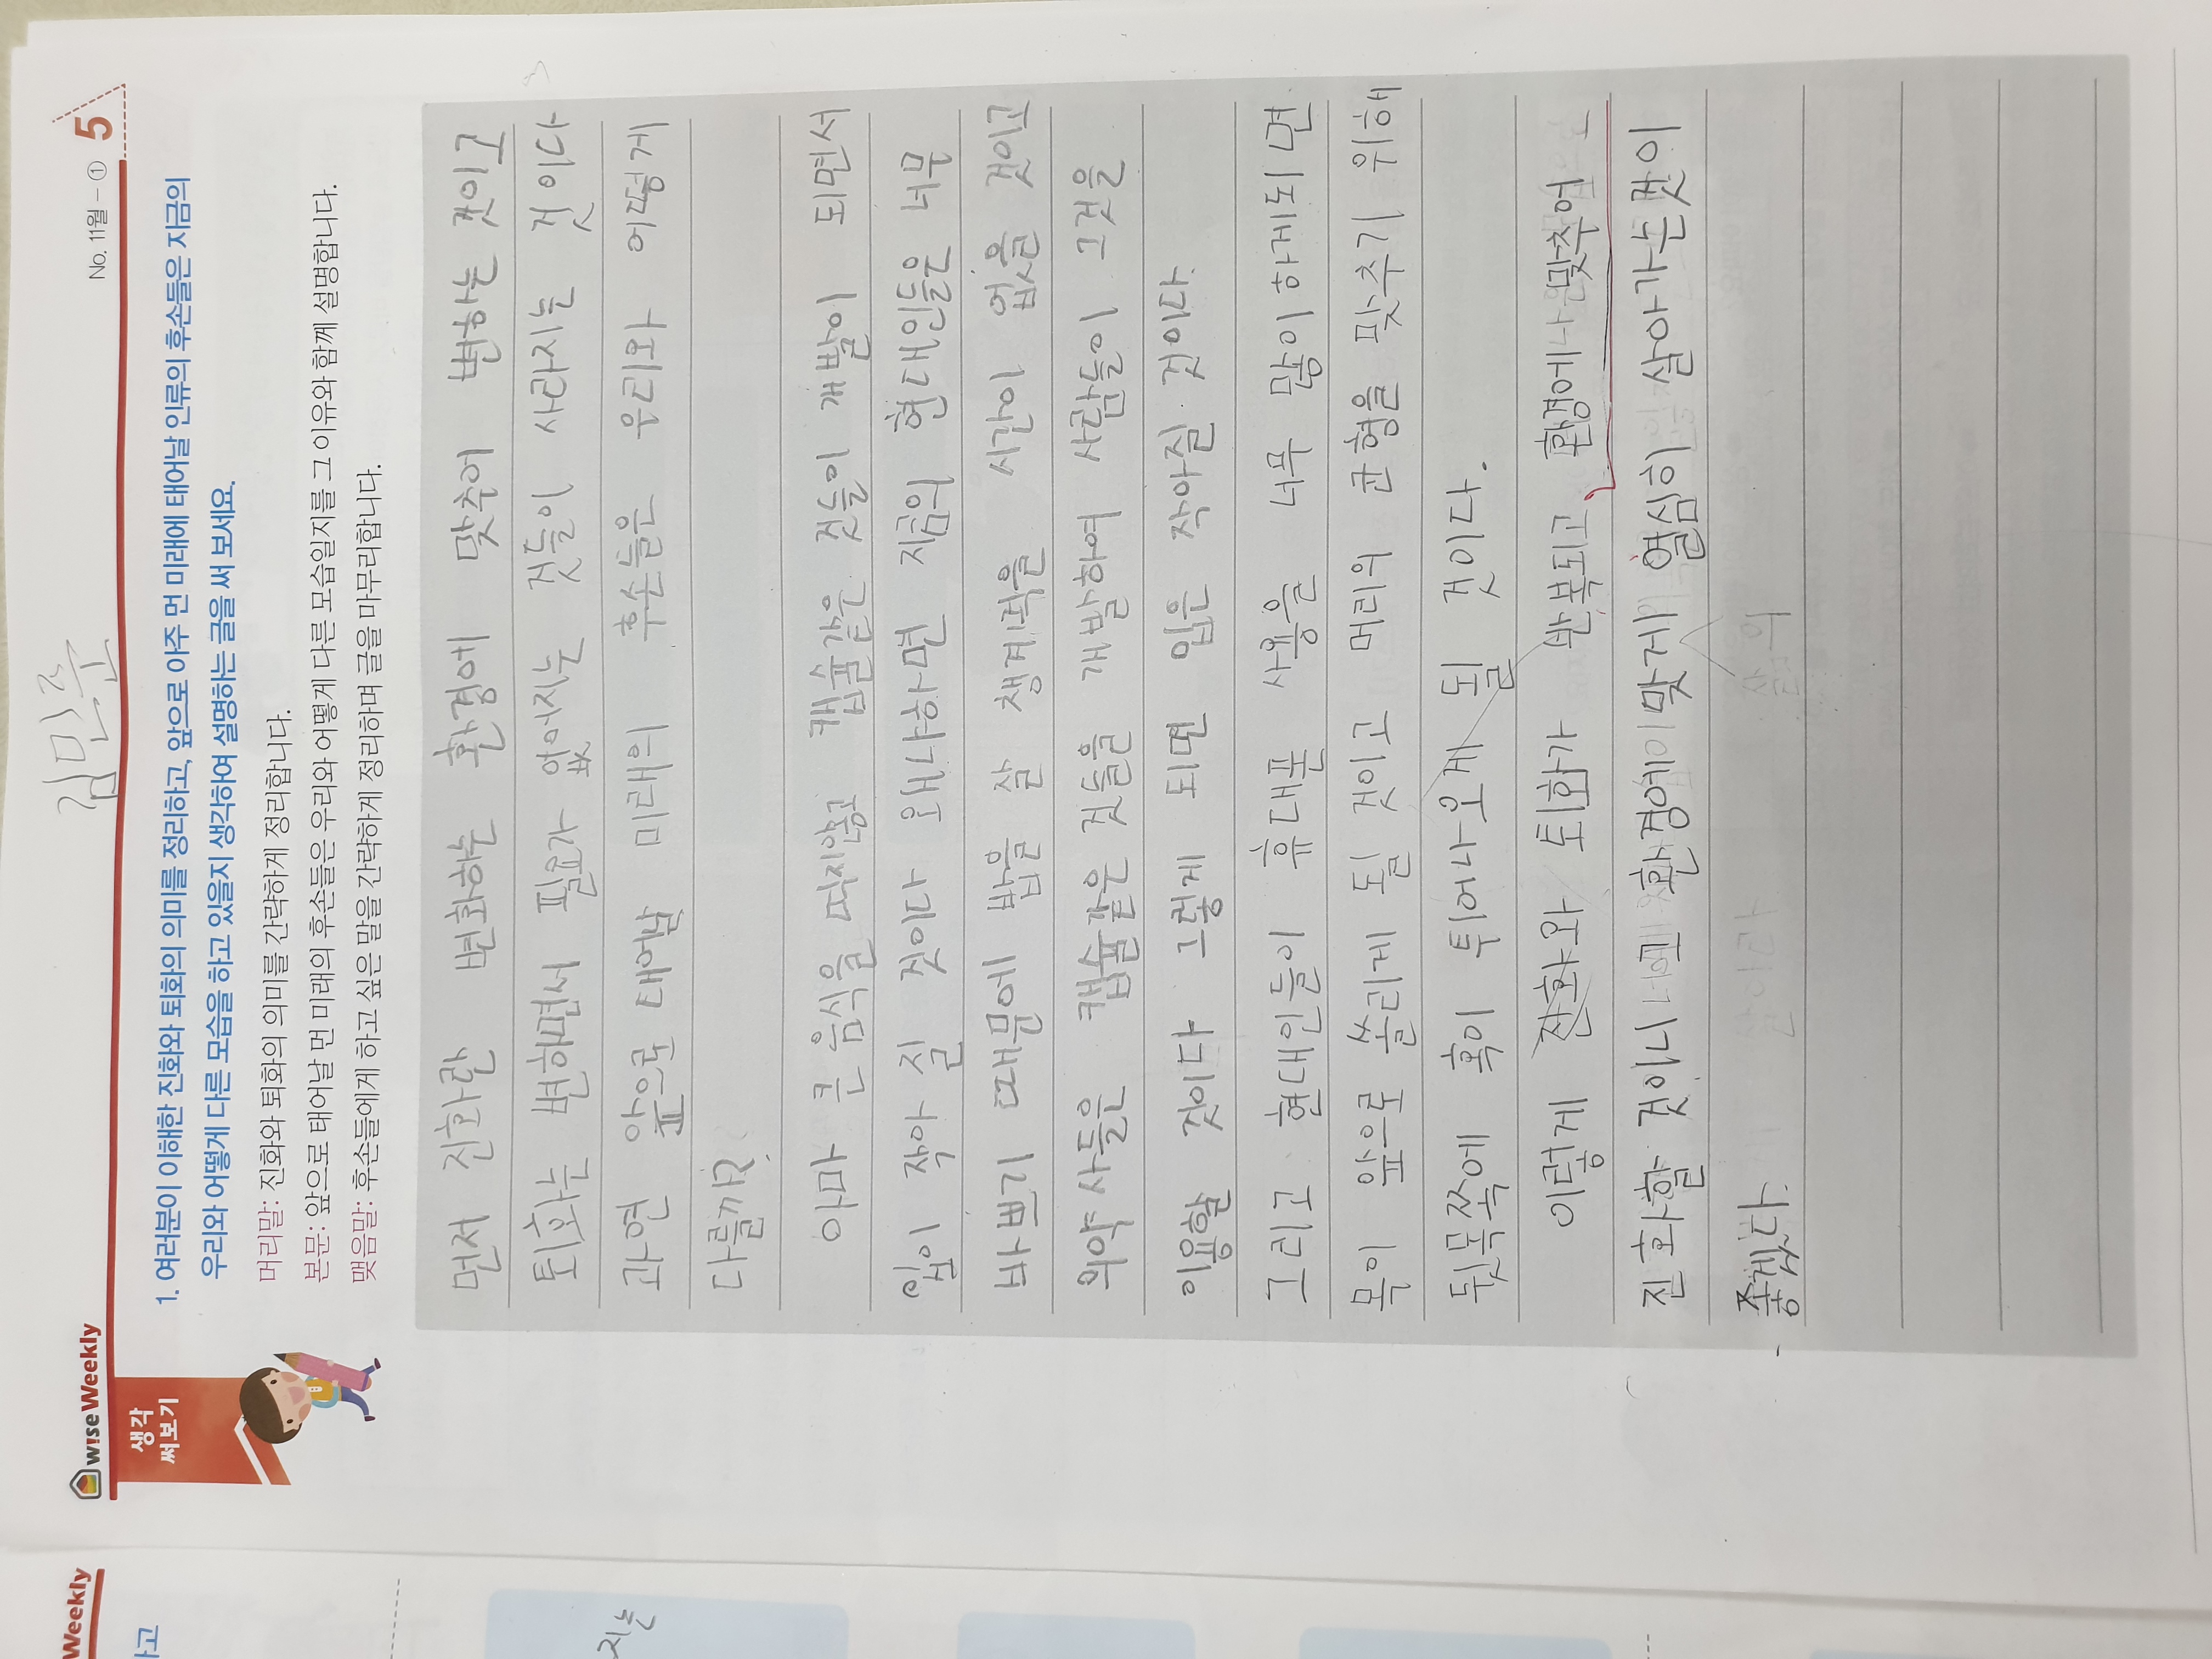 김민준
wiseWeekly
No. 11월-① 5
생각
써보기
1. 여러분이 이해한 진화와 퇴화의 의미를 정리하고, 앞으로 아주 먼 미래에 태어날 인류의 후손들은 지금의
우리와 어떻게 다른 모습을 하고 있을지 생각하여 설명하는 글을 써 보세요.
머리말: 진화와 퇴화의 의미를 간략하게 정리합니다.
본문: 앞으로 태어날 먼 미래의 후손들은 우리와 어떻게 다른 모습일지를 그 이유와 함께 설명합니다.
맺음말: 후손들에게 하고 싶은 말을 간략하게 정리하며 글을 마무리합니다.
먼저 진화란 변화하는 환경에 맞추어 변하는 것이고
퇴화는 변하면서 필요가 없어지는 것들이 사라지는 것이다
과연 앞으로 태어날 미래의 후손들은 우리와 어떻게
다를까?
아마 큰 음식을 먹지않고 캡슐같은 것들이 개발이 되면서
입이 작아 질 것이다 왜냐하면 지금의 현대인들은 너무
바쁘기 때문에 밥을 잘 챙겨먹을 시간이 없을 것이고
의약사들은 캡슐같은 것들을 개발하여 사람들이 그것을
이용할 것이다 그렇게 되면 입은 작아질 것이다.
그리고 현대인들이 휴대폰 사용을 너무 많이 하게되면
목이 앞으로 쏠리게 될 것이고 머리의 균형을 맞추기 위해
뒷목쪽에 혹이 튀어나오게 될 것이다.
이렇게 진화와 퇴화가 반복되고 환경에 맞추어
진화할 것이니 환경에 맞게 열심히 살아가는것이
좋겠다.
삶의
Weekly
하고
지는